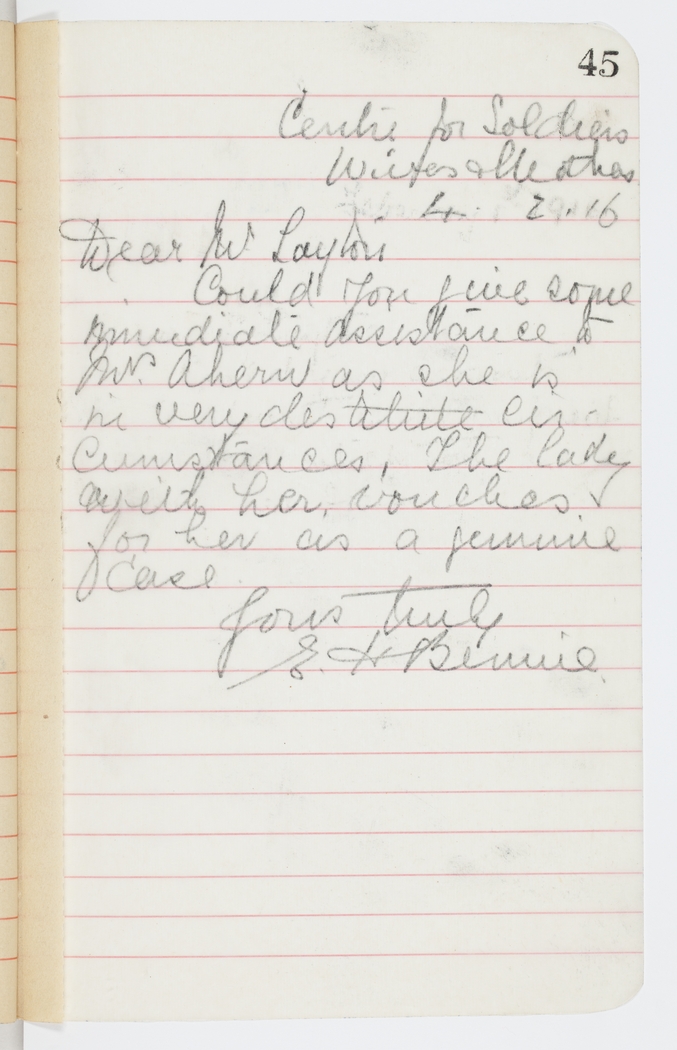 45
Centre for Soldiers
Wives & Mothers
4. 29.16
Dear Mr Layton
Could you give some
immediate assistance to
Mrs. Ahern as she is
in very destitute cir-
cumstances, The lady
with her, vouches
for her as a genuine
case.
Yours truly
E. H Binnie.